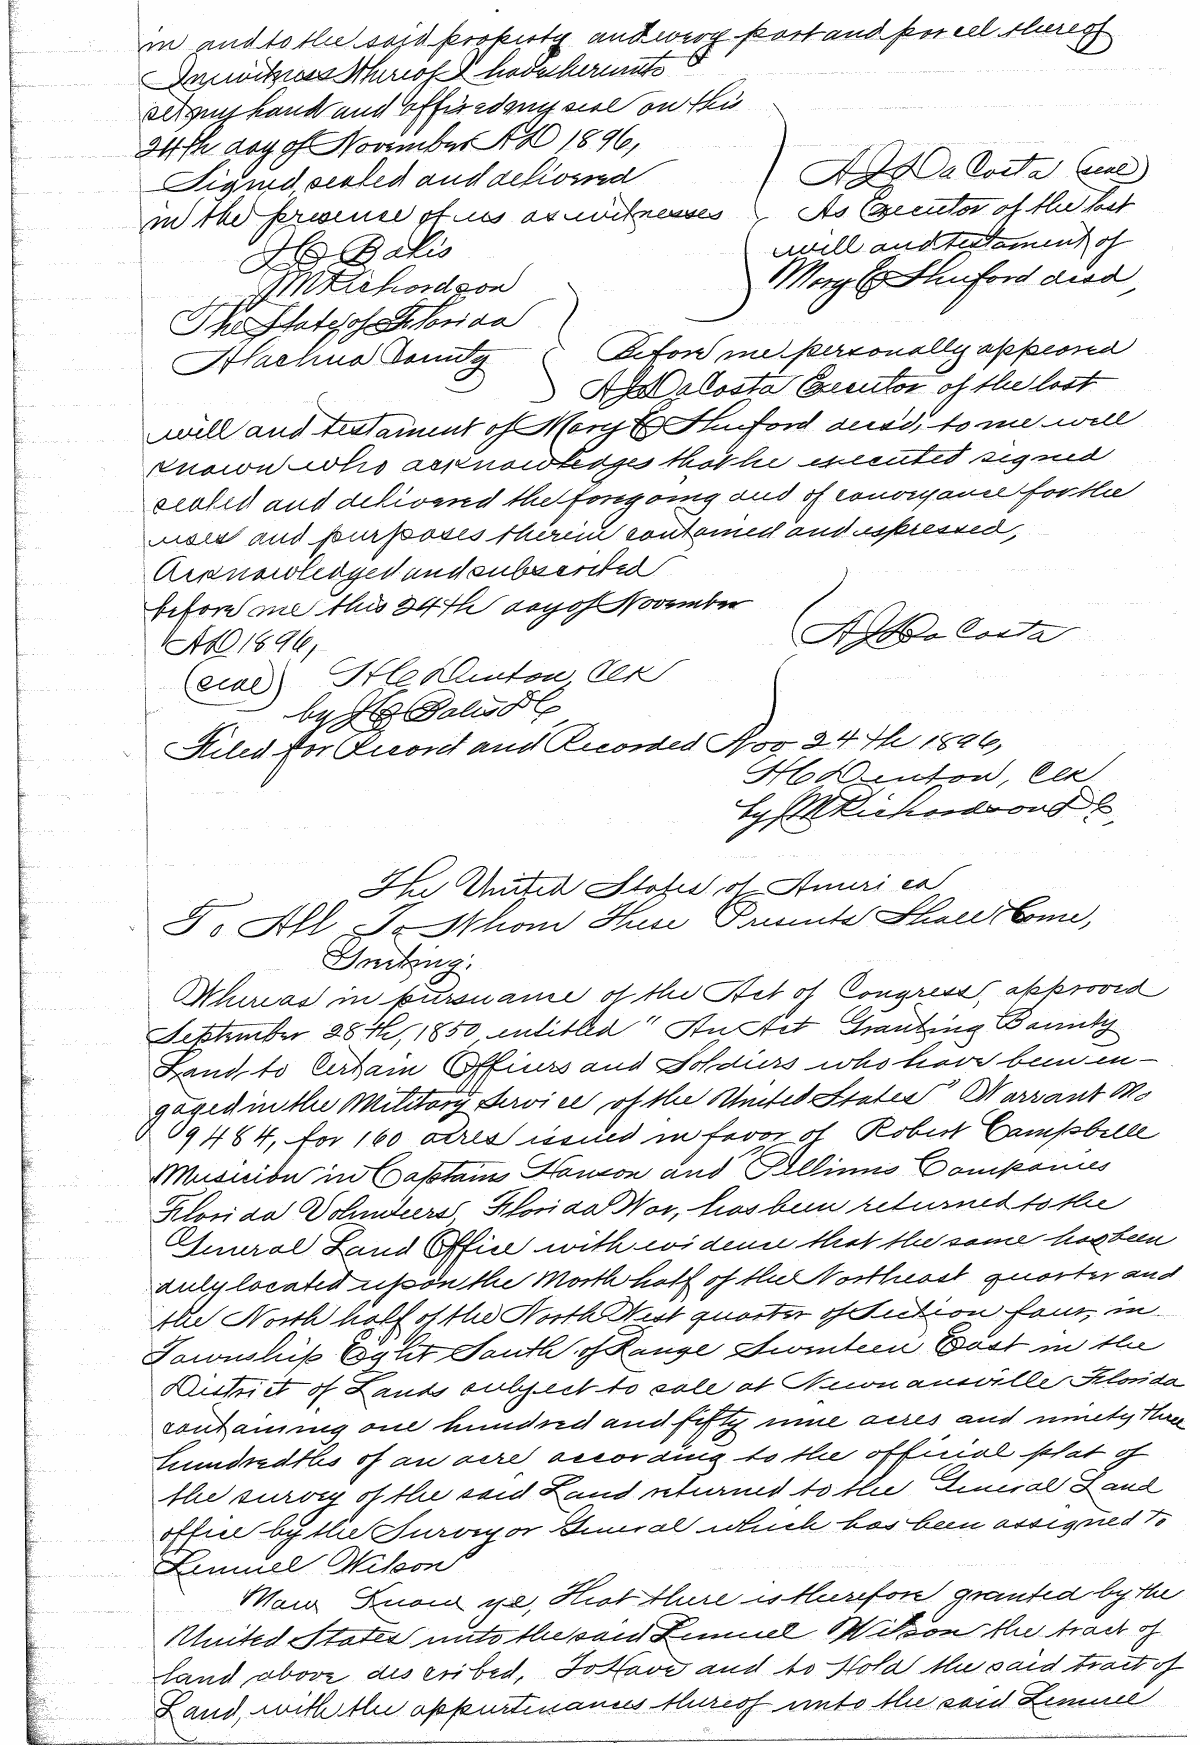 in and to the said property and every part and parcel thereof
In witness Whereof I have hereunto
set my hand and affixed my seal on this
24th day of November AD 1896,
Signed, sealed and delivered
in the presence of us as witnesses
A J Da Costa (seal)
As Executor of the last
will and testament of
Mary E Shuford decd,
Batis
M Richardson
The State of Florida
Alachua County
Before me personally appeared
A J Da Costa Executor of the last
will and testament of Mary E Shuford decs'd, to me well
known who acknowledges that he executed signed
sealed and delivered the foregoing deed of conveyance for the
uses and purposes therein contained and expressed,
Acknowledged and subscribed
before me this 24th day of November
AD 1896,
A J Da Costa
(seal) H C Denton, Clk
by Batis D C
Filed for Record and Recorded Nov 24th 1896,
H C Denton, Clk
by M Richardson D C,
The United States of America
To All To Whom These Presents Shall Come,
Greeting:
Whereas in pursuance of the Act of Congress, approved
September 28th, 1850, entitled "An Act Granting Bounty
Land to Certain Officers and Soldiers who have been en-
gaged in the Military Service of the United States" Warrant No
9484, for 160 acres issued in favor of Robert Campbelle
Musician in Captains Hanson and Pellinns Companies
Florida Volunteers, Florida War, has been returned to the
General Land Office with evidence that the same has been
duly located upon the North half of the Northeast quarter and
the North half of the North West quarter of Section four, in
Township Eight South of Range Seventeen East in the
District of Lands subject to sale at Newnansville Florida
containing one hundred and fifty nine acres and ninety three
hundredths of an acre according to the official plat of
the survey of the said Land returned to the General Land
office by the Surveyor General which has been assigned to
Lemuel Wilson
Now Know ye, That there is therefore granted by the
United States unto the said Lemuel Wilson the tract of
land above described, To Have and to Hold the said tract of
Land, with the appurtenances thereof unto the said Lemuel